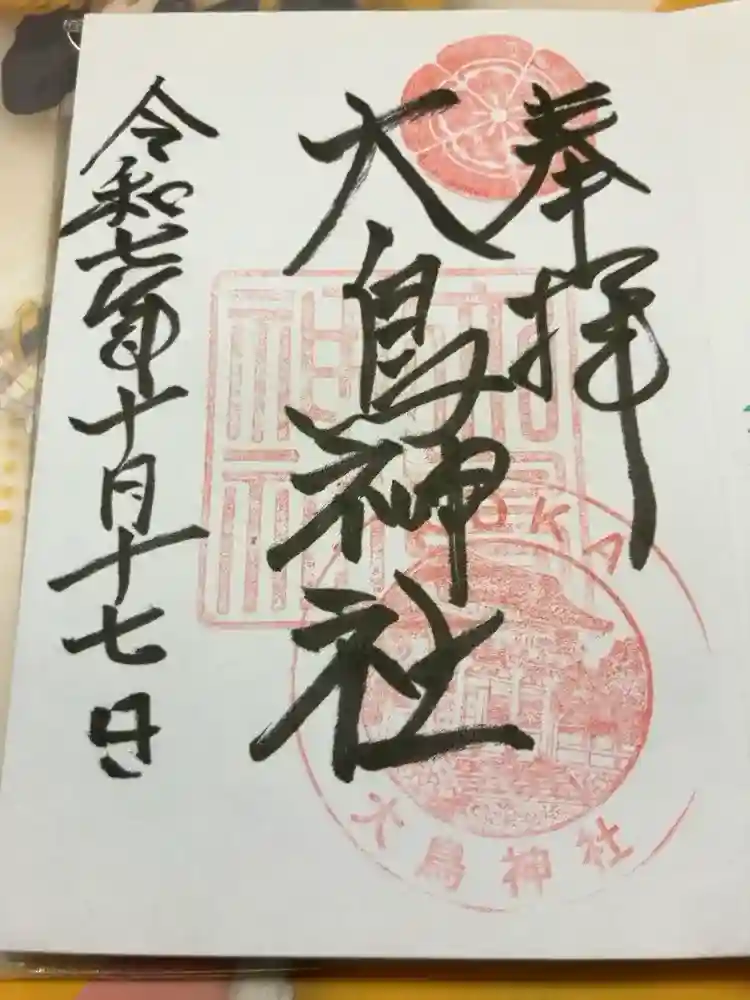 奉拝
大鳥神社
令和七年十月十七日
大鳥神社